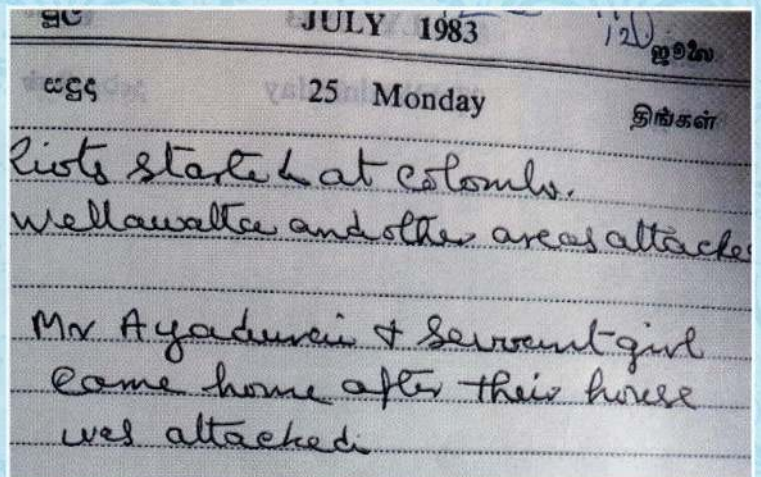 JULY 1983
ஜூலை
සඳුදා 25 Monday திங்கள்
Riots started at Colombo.
Wellawatta and other areas attacked
Mr Ayadurai & Servant girl
came home after their house
was attacked.